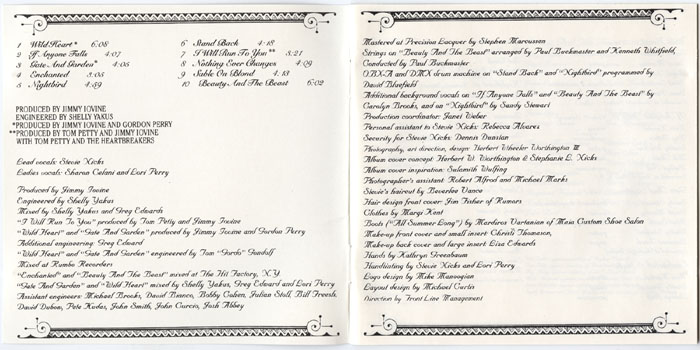 1 Wild Heart* 6:08
2 If Anyone Falls 4:07
3 Gate And Garden* 4:05
4 Enchanted 3:05
5 Nightbird 4:59
6 Stand Back 4:18
7 I Will Run To You** 3:21
8 Nothing Ever Changes 4:09
9 Sable On Blond 4:13
10 Beauty And The Beast 6:02
PRODUCED BY JIMMY IOVINE
ENGINEERED BY SHELLY YAKUS
*PRODUCED BY JIMMY IOVINE AND GORDON PERRY
**PRODUCED BY TOM PETTY AND JIMMY IOVINE
WITH TOM PETTY AND THE HEARTBREAKERS
Lead vocals: Stevie Nicks
Ladies vocals: Sharon Celani and Lori Perry
Produced by Jimmy Iovine
Engineered by Shelly Yakus
Mixed by Shelly Yakus and Greg Edwards
"I Will Run To You" produced by Tom Petty and Jimmy Iovine
"Wild Heart" and "Gate And Garden" produced by Jimmy Iovine and Gordon Perry
Additional engineering: Greg Edward
"Wild Heart" and "Gate And Garden" engineered by Tom "Gordo" Gondolf
Mixed at Rumbo Recorders
"Enchanted" and "Beauty And The Beast" mixed at The Hit Factory, N.Y.
"Gate And Garden" and "Wild Heart" mixed by Shelly Yakus, Greg Edward and Lori Perry
Assistant engineers: Michael Brooks, David Bianco, Bobby Cohen, Julian Stoll, Bill Freesh,
David Dubow, Pete Kudas, John Smith, John Curcio, Josh Abbey
Mastered at Precision Lacquer by Stephen Marcussen
Strings on "Beauty And The Beast" arranged by Paul Buckmaster and Kenneth Whitfield,
Conducted by Paul Buckmaster
OBX-A and DMX drum machine on "Stand Back" and "Nightbird" programmed by
David Bluefield
Additional background vocals on "If Anyone Falls" and "Beauty And The Beast" by
Carolyn Brooks, and on "Nightbird" by Sandy Stewart
Production coordinator: Janet Weber
Personal assistant to Stevie Nicks: Rebecca Alvarez
Security for Stevie Nicks: Dennis Dunstan
Photography, art direction, design: Herbert Wheeler Worthington III
Album cover concept: Herbert W. Worthington & Stephanie L. Nicks
Album cover inspiration: Sulamith Wulfing
Photographer's assistant: Robert Alfred and Michael Marks
Stevie's haircut by Beverlee Vance
Hair design front cover: Jim Fisher of Rumors
Clothes by Margi Kent
Boots ("All Summer Long") by Mardiros Vartanian of Maia Custom Shoe Salon
Make-up front cover and small insert: Christi Thomason,
Make-up back cover and large insert Liza Edwards
Hands by Kathryn Greenbaum
Handwriting by Stevie Nicks and Lori Perry
Logo design by Mike Manoogian
Layout design by Michael Curtis
Direction by Front Line Management